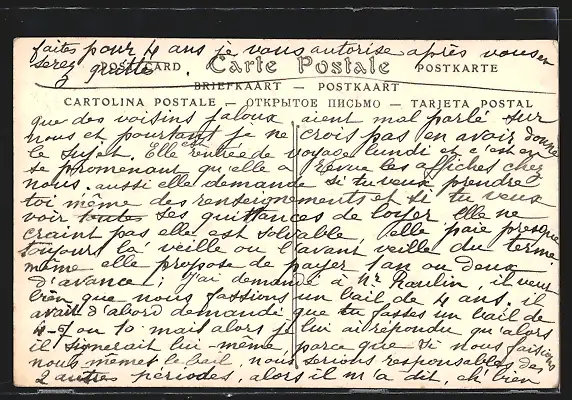 faites pour 4 ans je vous autorise après vous en
serez quittes.
POSTCARD Carte Postale POSTKARTE
BRIEFKAART — POSTKAART
CARTOLINA POSTALE — ОТКРЫТОЕ ПИСЬМО — TARJETA POSTAL
que des voisins jaloux aient mal parlé sur
nous et pourtant je ne crois pas en avoir donné
le sujet. Elle est rentrée de voyage lundi et c'est en
se promenant qu'elle a revue les affiches chez
nous, aussi elle demande si tu veux prendre
toi même des renseignements et si tu veux
voir toutes ses quittances de loyer elle ne
craint pas elle est solvable, elle paie presque
toujours la veille ou l'avant veille du terme
même elle propose de payer 1 an ou deux
d'avance; j'ai demandé à Mr. Raulin, il veut
bien que nous fassions un bail de 4 ans. il
avait d'abord demandé que tu fasses un bail de
ou 10 mais alors je lui ai répondu qu'alors
il signerait lui-même parce que si nous faisions
nous mêmes le bail, nous serions responsables des
2 autres périodes, alors il m'a dit, eh bien